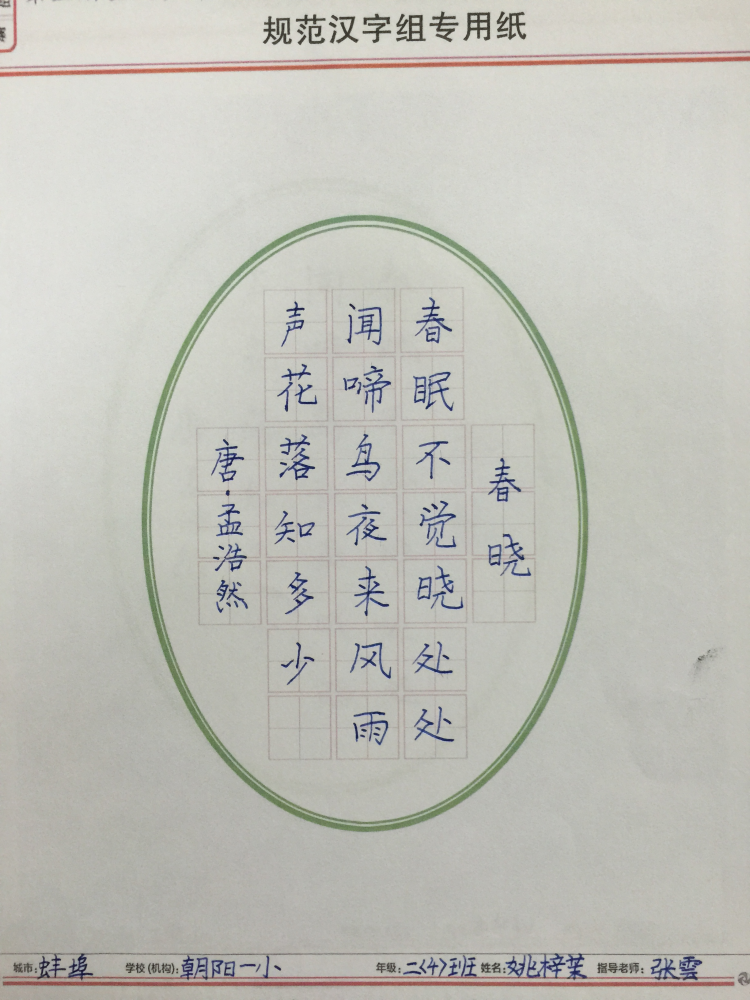 规范汉字组专用纸
春晓
春眠不觉晓处处
闻啼鸟夜来风雨
声花落知多少
唐·孟浩然
城市:蚌埠 学校(机构):朝阳一小 年级:二〈4〉班 姓名:姚梓茉 指导老师:张雲